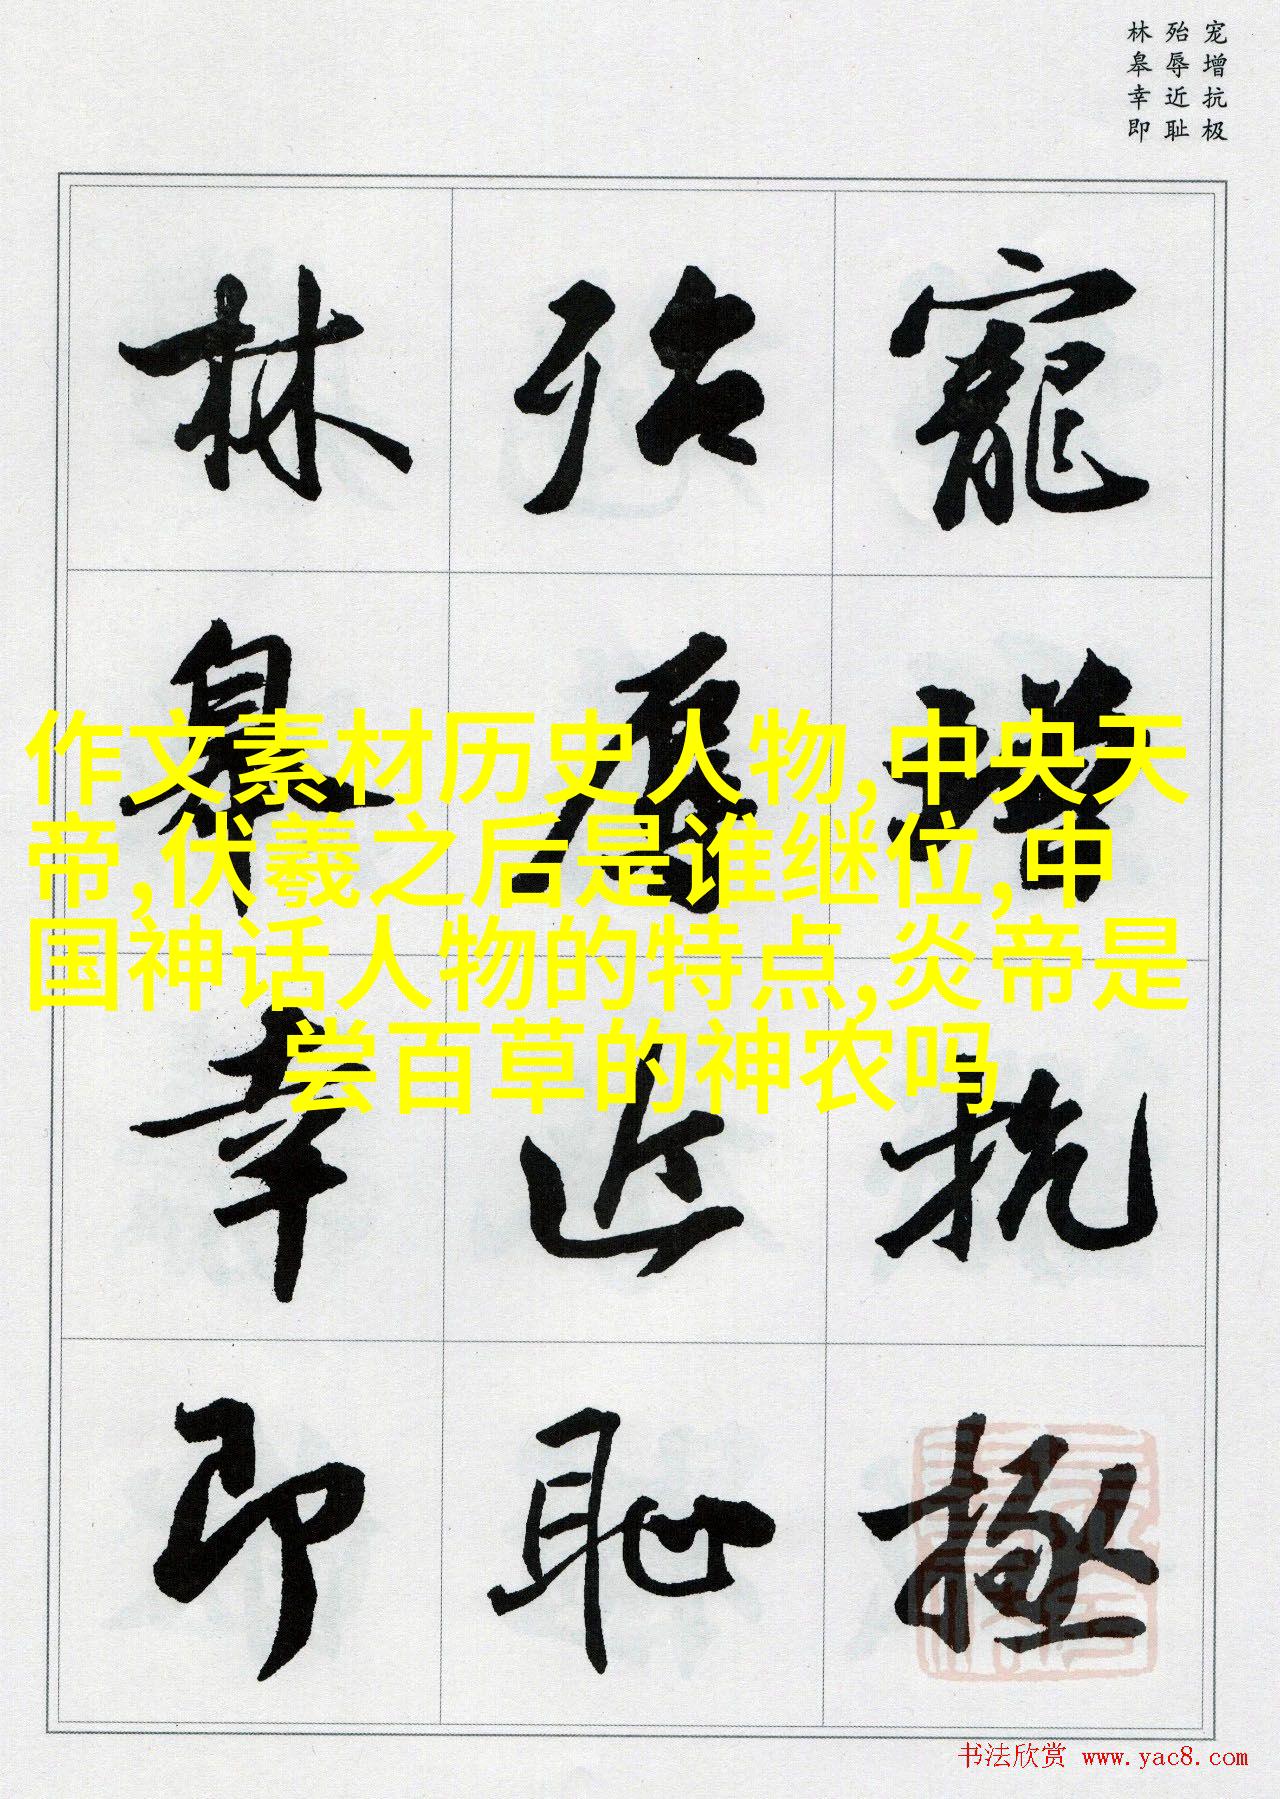 宠增抗极
殆辱近耻
林皋幸即
寵增抗極
殆辱近恥
林皋幸即
作文素材历史人物,中央天
帝,伏羲之后是谁继位,中
国神话人物的特点,炎帝是
尝百草的神农吗
书法欣赏 www.yac8.com